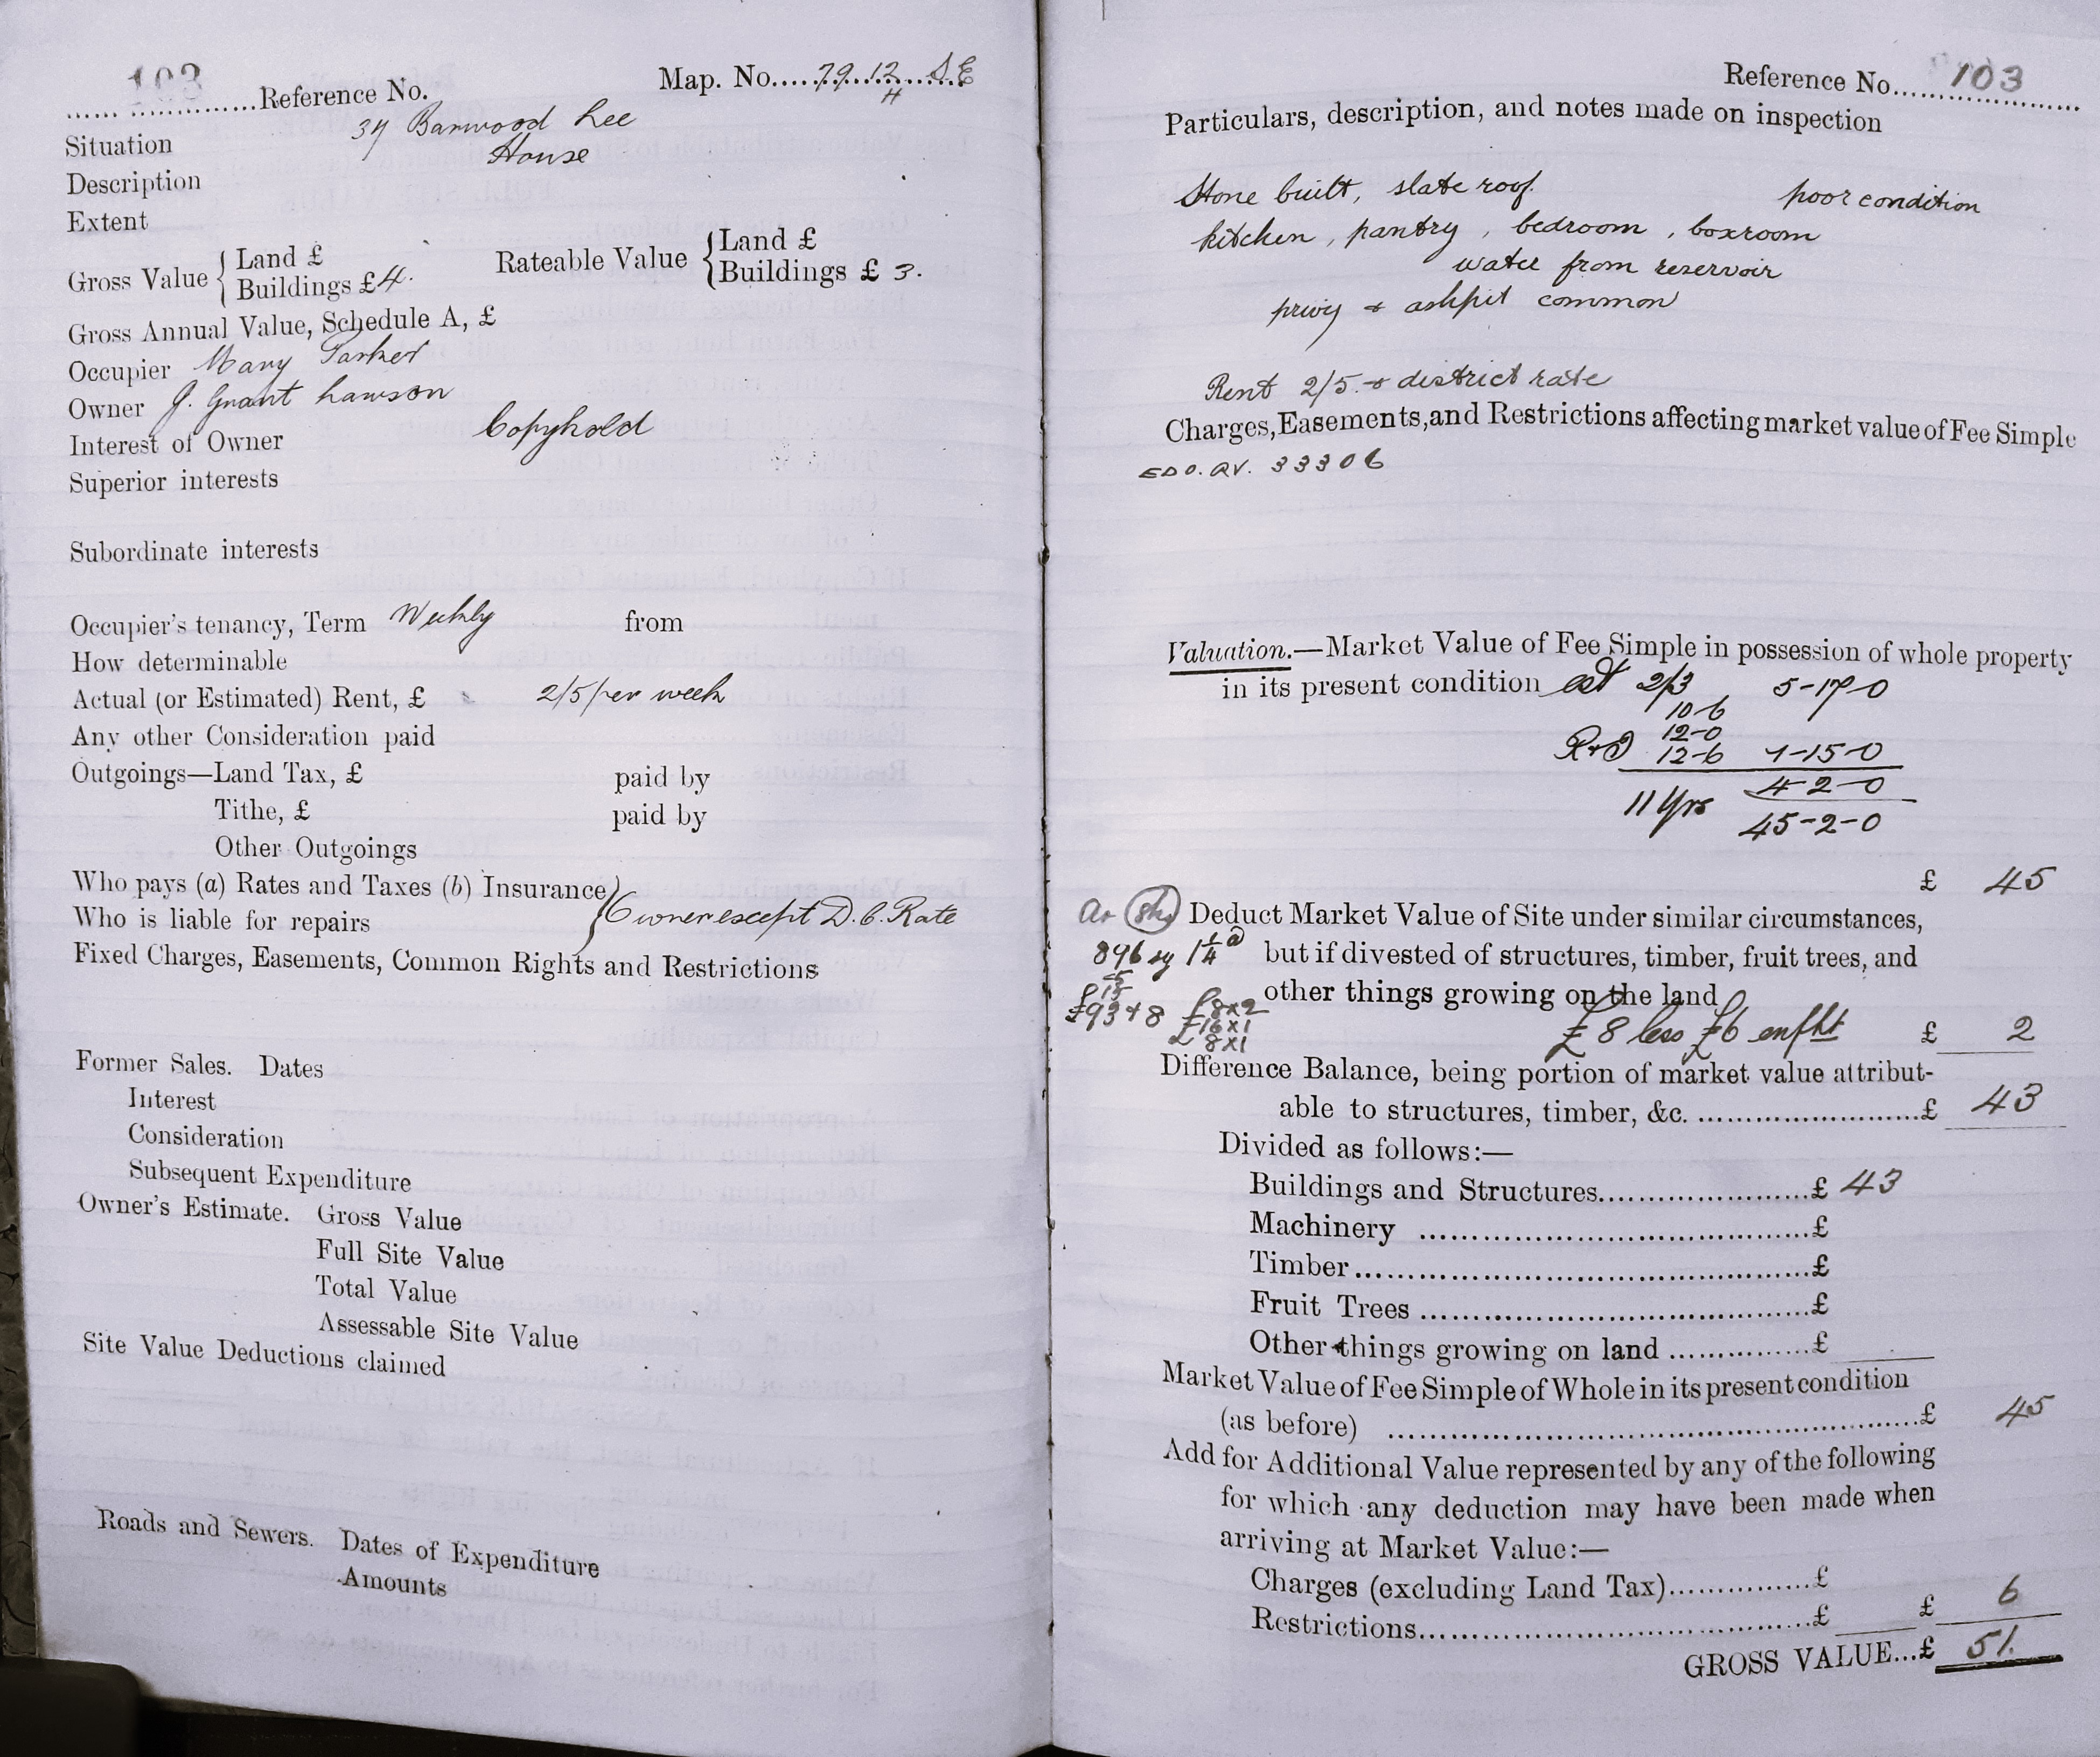 103 Reference No. Map. No. 79.12 S.E
H
Situation 34 Barwood Lee
Description House
Extent
Gross Value { Land £
Buildings £ 4.
Rateable Value { Land £
Buildings £ 3.
Gross Annual Value, Schedule A, £
Occupier Mary
Owner J. Grant Lawson
Interest of Owner Copyhold
Superior interests
Subordinate interests
Occupier's tenancy, Term Weekly from
How determinable
Actual (or Estimated) Rent, £ 2/5 per week
Any other Consideration paid
Outgoings—Land Tax, £ paid by
Tithe, £ paid by
Other Outgoings
Who pays (a) Rates and Taxes (b) Insurance }
Who is liable for repairs } Owner except D.C. Rate
Fixed Charges, Easements, Common Rights and Restrictions
Former Sales. Dates
Interest
Consideration
Subsequent Expenditure
Owner's Estimate. Gross Value
Full Site Value
Total Value
Assessable Site Value
Site Value Deductions claimed
Roads and Sewers. Dates of Expenditure
Amounts
Reference No. 103
Particulars, description, and notes made on inspection
Stone built, slate roof. poor condition
kitchen, pantry, bedroom, boxroom
water from reservoir
privy & ashpit common
Rent 2/5. & district rate
Charges, Easements, and Restrictions affecting market value of Fee Simple
33306
Valuation.—Market Value of Fee Simple in possession of whole property
in its present condition est 2/3 5-17-0
10-6
12-0
R&D 12-6 1-15-0
4-2-0
11 Yrs 45-2-0
£ 45
Deduct Market Value of Site under similar circumstances,
896 sy 1¼d but if divested of structures, timber, fruit trees, and
other things growing on the land
£ 8x2
£16x1
£ 8x1
£8 less £6 enfht £ 2
Difference Balance, being portion of market value attribut-
able to structures, timber, &c. £ 43
Divided as follows:—
Buildings and Structures £ 43
Machinery £
Timber £
Fruit Trees £
Other things growing on land £
Market Value of Fee Simple of Whole in its present condition
(as before) £ 45
Add for Additional Value represented by any of the following
for which any deduction may have been made when
arriving at Market Value:—
Charges (excluding Land Tax) £
Restrictions £ £ 6
GROSS VALUE...£ 51.